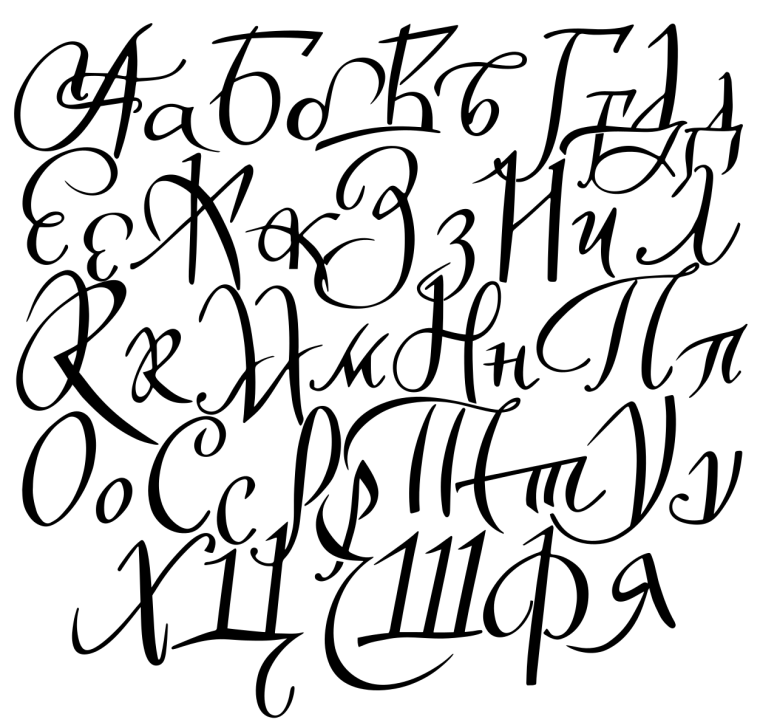 АаБбВвГгДд
ЕеЖжЗзИил
КкМмНнПп
ОоСсРрТтУу
ХЦШФя